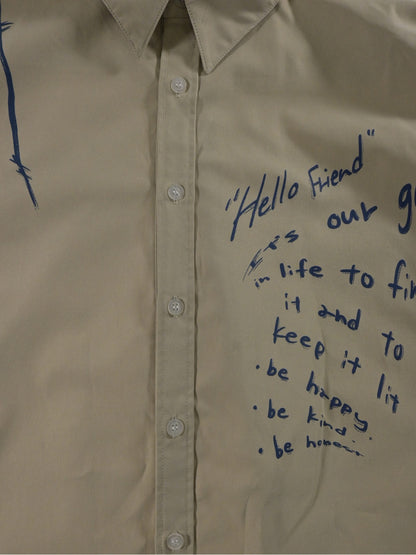 "Hello Friend"
our g
in life to fin
it and to
keep it lit
• be happy
• be kind
• be